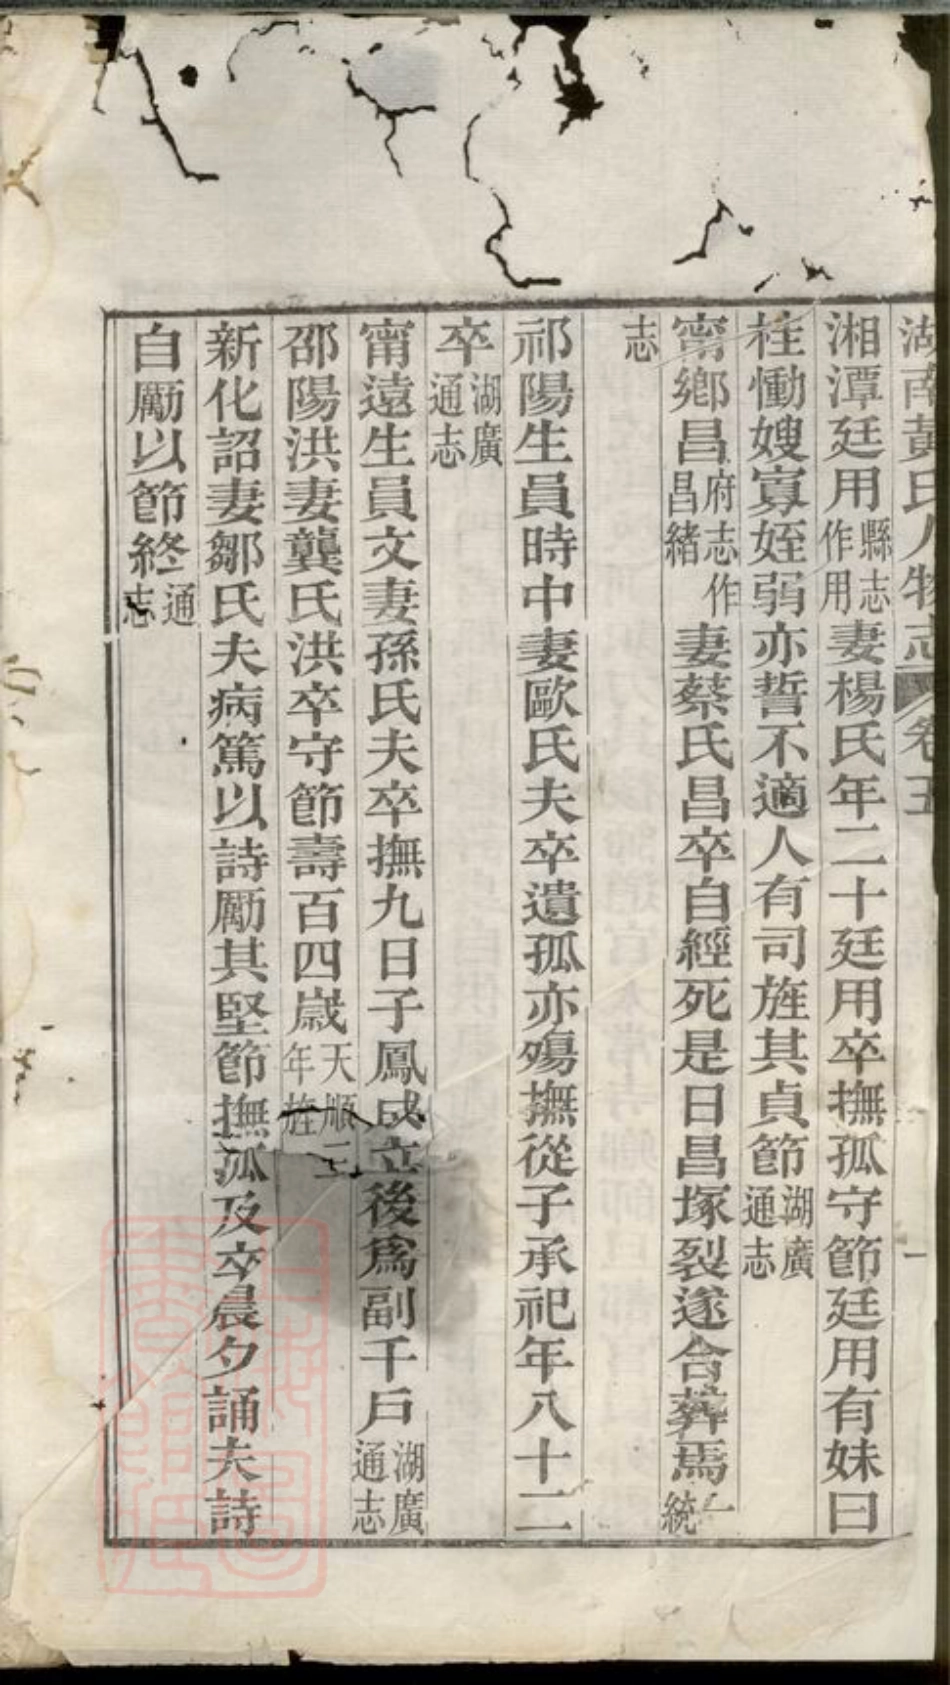 湖南黃氏人物志 卷五 一
湘潭廷用縣志作用妻楊氏年二十廷用卒撫孤守節廷用有妹曰
桂慟嫂寡姪弱亦誓不適人有司旌其貞節湖廣通志
甯鄉昌府志作昌緒妻蔡氏昌卒自經死是日昌塚裂遂合葬焉一統
志
祁陽生員時中妻歐氏夫卒遺孤亦殤撫從子承祀年八十二
卒湖廣通志
甯遠生員文妻孫氏夫卒撫九日子鳳成立後為副千戶湖廣通志
邵陽洪妻龔氏洪卒守節壽百四歲天順三年旌
新化詔妻鄒氏夫病篤以詩勵其堅節撫孤及卒晨夕誦夫詩
自勵以節終通志